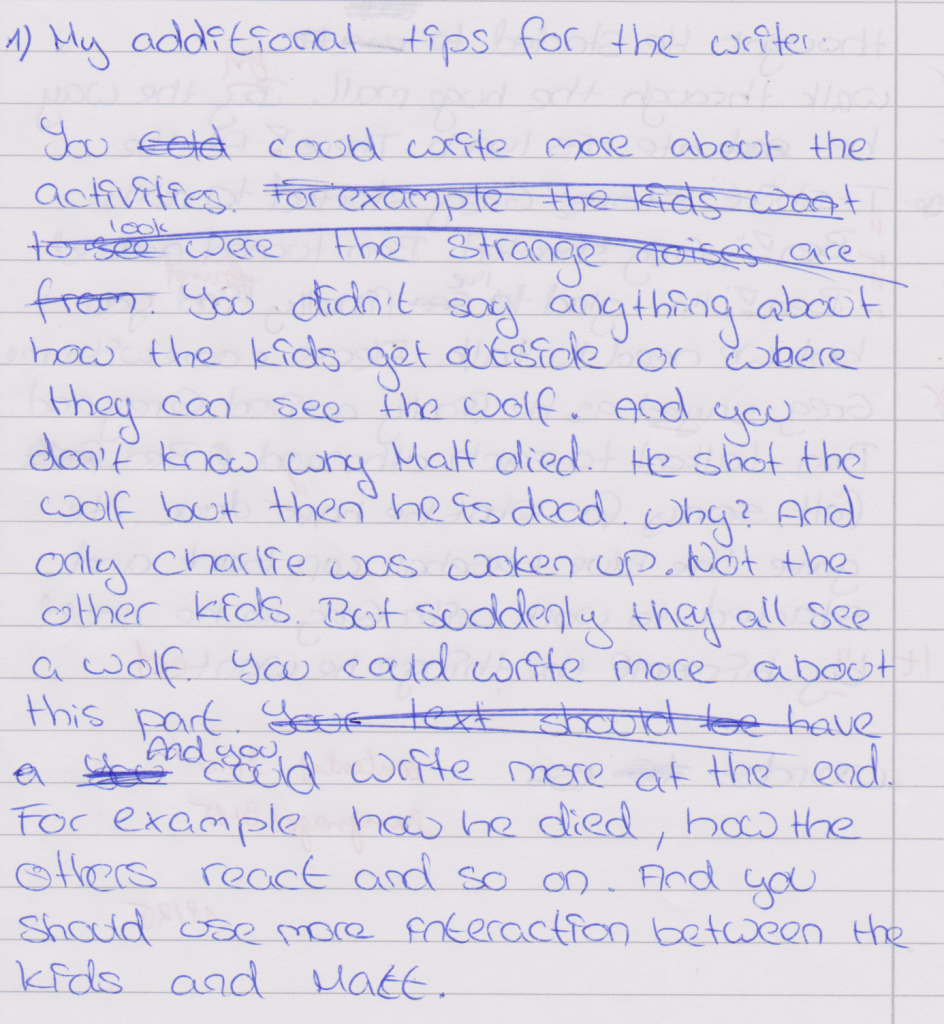 1) My additional tips for the writer:
You could could write more about the
activities. For example the kids want
to see look were the strange noises are
from. You didn't say anything about
how the kids get outside or where
they can see the wolf. And you
don't know why Matt died. He shot the
wolf but then he is dead. Why? And
only Charlie was woken up. Not the
other kids. But suddenly they all see
a wolf. You could write more about
this part. Your text should be have
a You And you could write more at the end.
For example how he died, how the
others react and so on. And you
should use more interaction between the
kids and Matt.